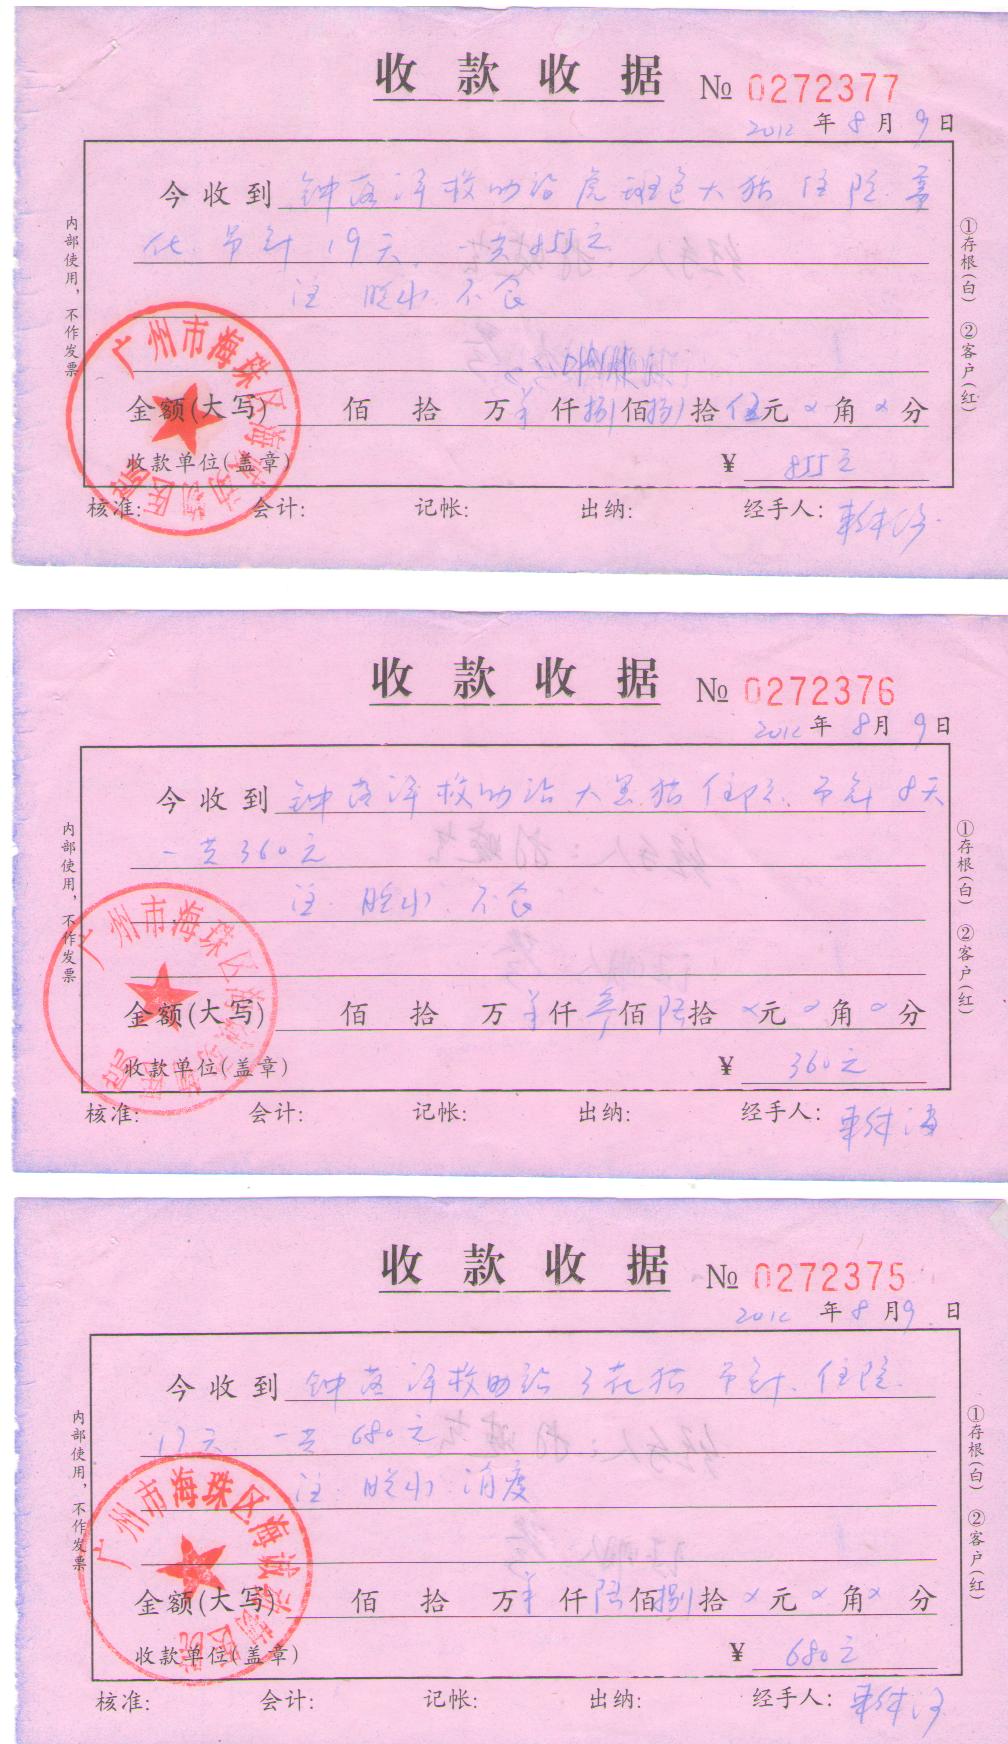 收款收据 № 0272377
2012年8月9日
今收到 钟落潭救助站虎斑色大猫住院
吊针19天，一共855元
注 脱水 不食
金额(大写) 佰 拾 万 仟捌佰 拾伍元 角 分
收款单位(盖章) ¥ 855元
核准: 会计: 记帐: 出纳: 经手人:
内部使用，不作发票
①存根(白) ②客户(红)
广州市海珠区海 动物医院
收款收据 № 0272376
2012年8月9日
今收到 钟落潭救助站大黑猫住院、吊针8天
一共360元
注 脱水 不食
金额(大写) 佰 拾 万 仟叁佰陆拾 元 角 分
收款单位(盖章) ¥ 360元
核准: 会计: 记帐: 出纳: 经手人:
内部使用，不作发票
①存根(白) ②客户(红)
广州市海珠区海
收款收据 № 0272375
2012年8月9日
今收到 钟落潭救助站 花猫 吊针、住院
17天 一共680元
注 脱水 消瘦
金额(大写) 佰 拾 万 仟陆佰捌拾 元 角 分
收款单位(盖章) ¥ 680元
核准: 会计: 记帐: 出纳: 经手人:
内部使用，不作发票
①存根(白) ②客户(红)
广州市海珠区海诚动物医院